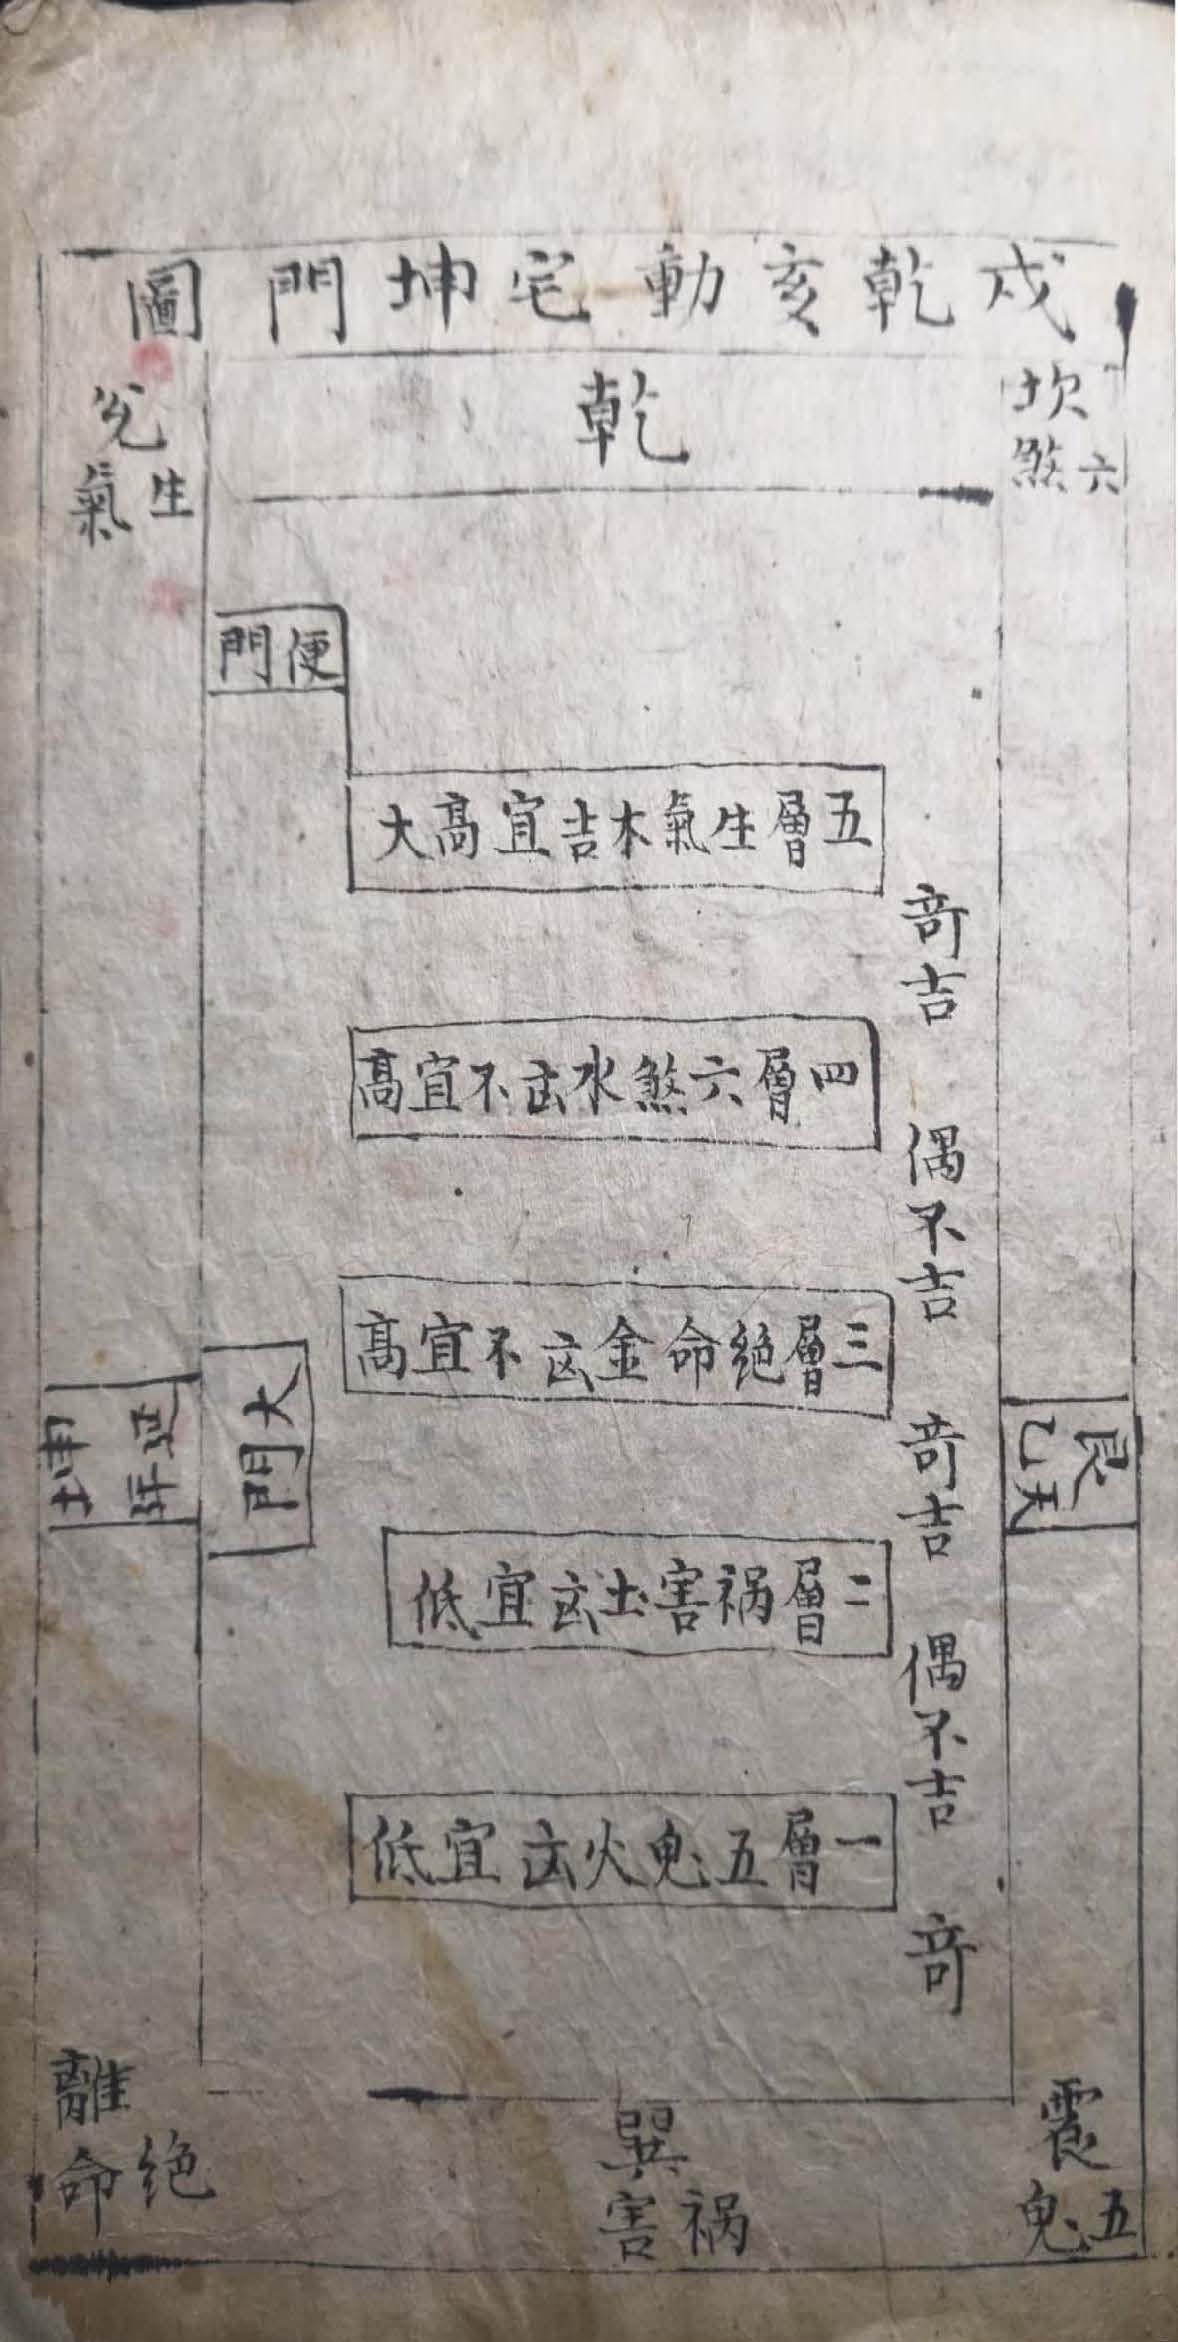 戌乾亥動宅坤門圖
坎
六煞
乾
兌
生氣
便門
五層生氣木吉宜高大
竒吉
四層六煞水㐫不宜高
偶不吉
三層绝命金㐫不宜高
竒吉
大門
坤
延年
艮
天乙
二層祸害土㐫宜低
偶不吉
一層五鬼火㐫宜低
竒
震
五鬼
巽
祸害
離
绝命